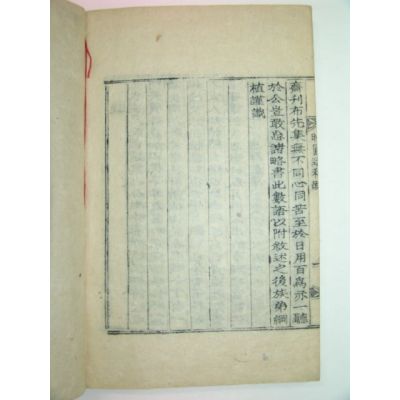 齋利布先集無不同心同苦至於日用百爲亦一聽
於公豈敢忘諸略書此數語以附敘述之後族弟綱
植謹識